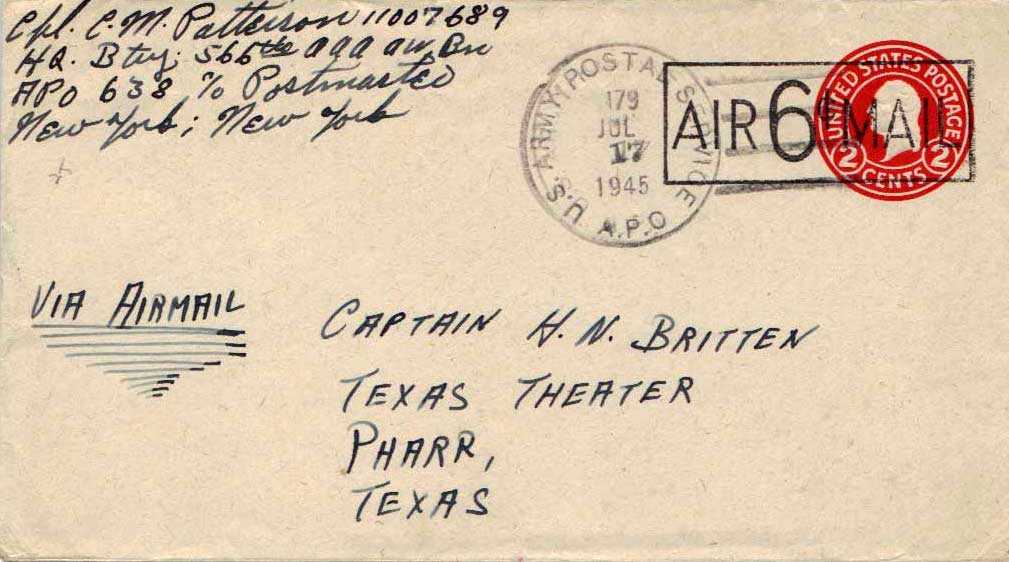 Cpl. C. M. Patterson 11007689
HQ. Btry. 566th aaa aw. Bn
APO 638 % Postmaster
New York; New York
U.S. ARMY POSTAL SERVICE
179
JUL
17
1945
A.P.O
AIR 6¢ MAIL
UNITED STATES POSTAGE
2 CENTS 2
VIA AIRMAIL
CAPTAIN H. N. BRITTEN
TEXAS THEATER
PHARR,
TEXAS